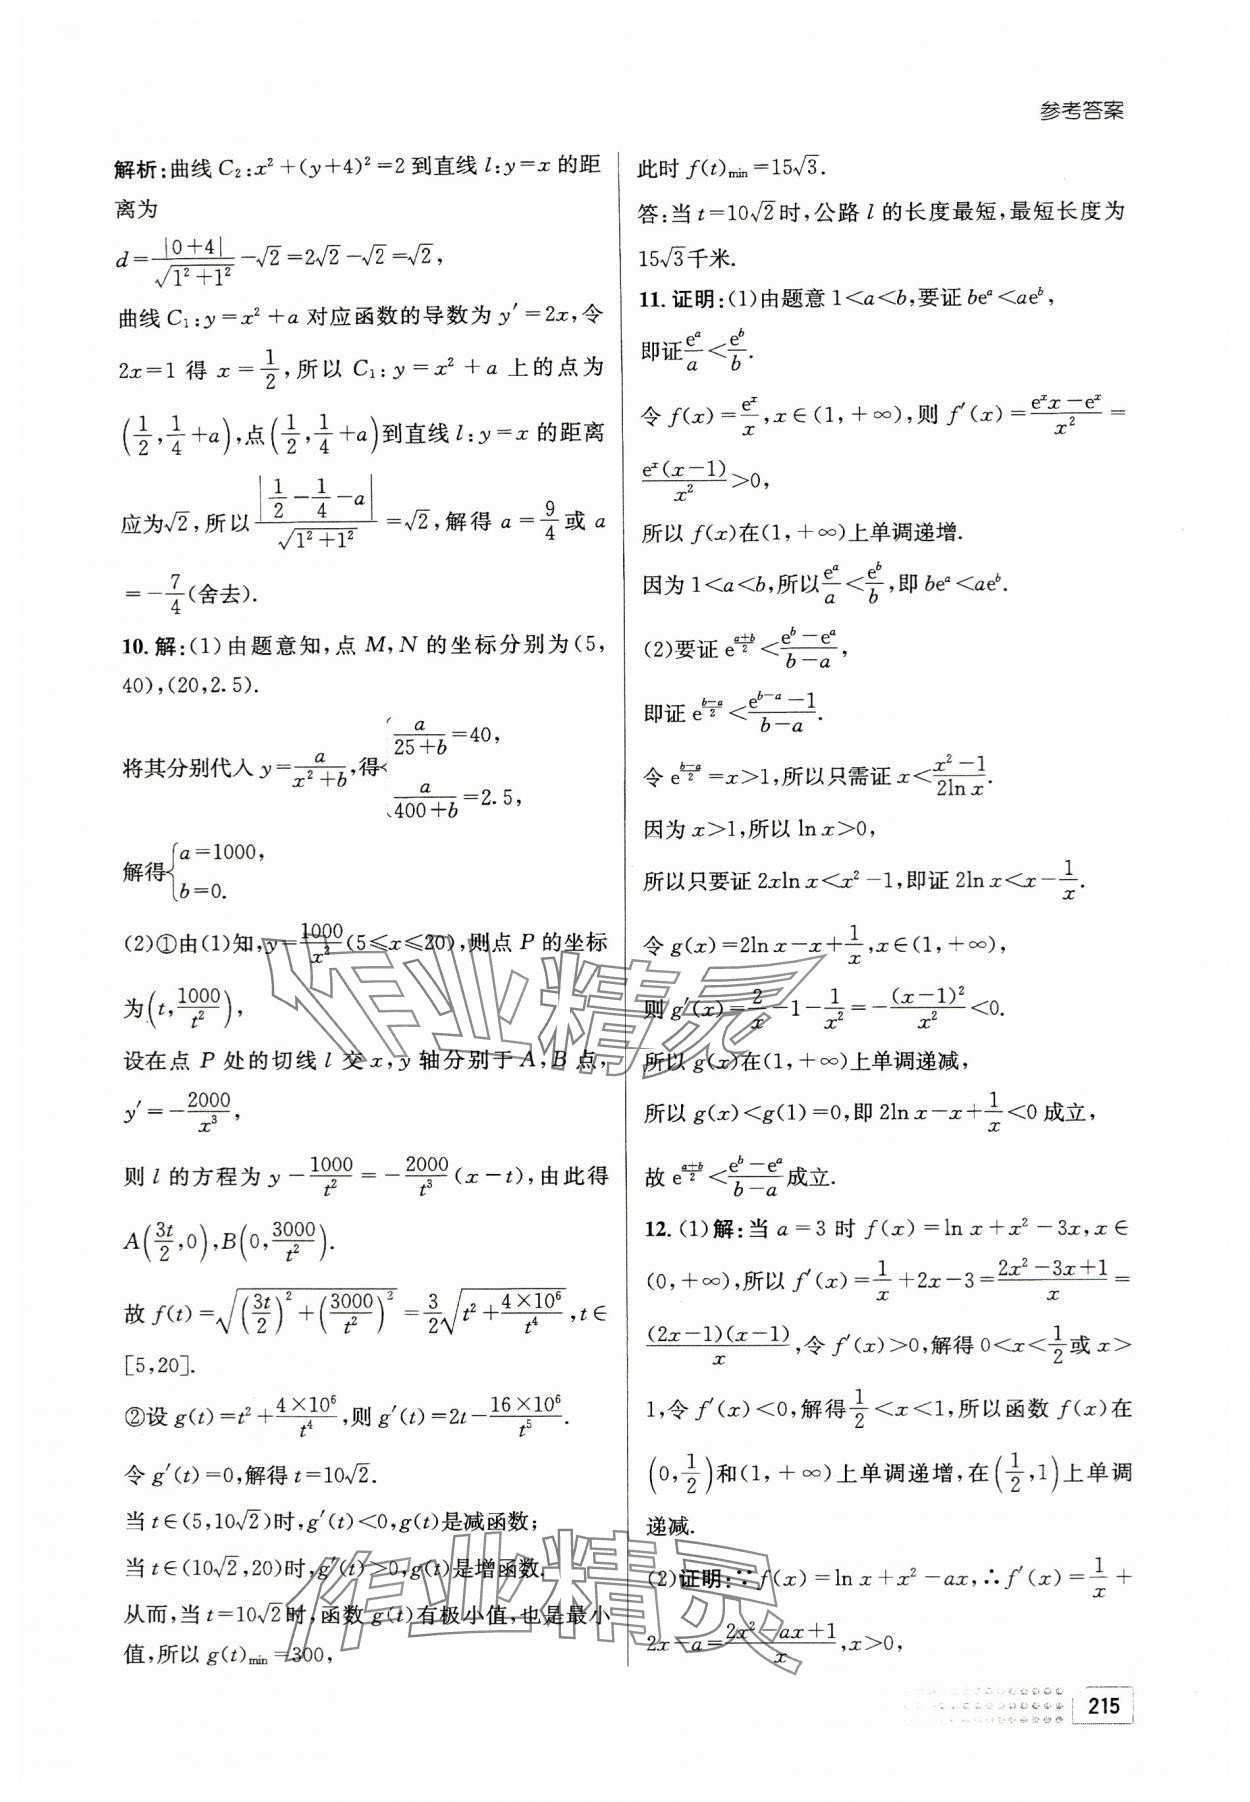 参考答案
解析:曲线 C₂:x²+(y+4)²=2 到直线 l:y=x 的距
离为
d=|0+4|/√(1²+1²)-√2=2√2-√2=√2,
曲线 C₁:y=x²+a 对应函数的导数为 y′=2x,令
2x=1 得 x=1/2,所以 C₁:y=x²+a 上的点为
(1/2,1/4+a),点(1/2,1/4+a)到直线 l:y=x 的距离
应为√2,所以|1/2-1/4-a|/√(1²+1²)=√2,解得 a=9/4或 a
=-7/4(舍去).
10.解:(1)由题意知,点 M,N 的坐标分别为(5,
40),(20,2.5).
将其分别代入 y=a/(x²+b),得{a/(25+b)=40,
a/(400+b)=2.5,
解得{a=1000,
b=0.
(2)①由(1)知,y=1000/x²(5≤x≤20),则点 P 的坐标
为(t,1000/t²),
设在点 P 处的切线 l 交 x,y 轴分别于 A,B 点,
y′=-2000/x³,
则 l 的方程为 y-1000/t²=-2000/t³(x-t),由此得
A(3t/2,0),B(0,3000/t²).
故 f(t)=√((3t/2)²+(3000/t²)²)=3/2√(t²+4×10⁶/t⁴),t∈
[5,20].
②设 g(t)=t²+4×10⁶/t⁴,则 g′(t)=2t-16×10⁶/t⁵.
令 g′(t)=0,解得 t=10√2.
当 t∈(5,10√2)时,g′(t)<0,g(t)是减函数;
当 t∈(10√2,20)时,g′(t)>0,g(t)是增函数.
从而,当 t=10√2时,函数 g(t)有极小值,也是最小
值,所以 g(t)min=300,
此时 f(t)min=15√3.
答:当 t=10√2时,公路 l 的长度最短,最短长度为
15√3千米.
11.证明:(1)由题意 1<a<b,要证 beᵃ<aeᵇ,
即证eᵃ/a<eᵇ/b.
令 f(x)=eˣ/x,x∈(1,+∞),则 f′(x)=(eˣx-eˣ)/x²=
eˣ(x-1)/x²>0,
所以 f(x)在(1,+∞)上单调递增.
因为 1<a<b,所以eᵃ/a<eᵇ/b,即 beᵃ<aeᵇ.
(2)要证 e^((a+b)/2)<(eᵇ-eᵃ)/(b-a),
即证 e^((b-a)/2)<(e^(b-a)-1)/(b-a).
令 e^((b-a)/2)=x>1,所以只需证 x<(x²-1)/(2ln x).
因为 x>1,所以 ln x>0,
所以只要证 2xln x<x²-1,即证 2ln x<x-1/x.
令 g(x)=2ln x-x+1/x,x∈(1,+∞),
则 g′(x)=2/x-1-1/x²=-(x-1)²/x²<0.
所以 g(x)在(1,+∞)上单调递减,
所以 g(x)<g(1)=0,即 2ln x-x+1/x<0 成立,
故 e^((a+b)/2)<(eᵇ-eᵃ)/(b-a)成立.
12.(1)解:当 a=3 时 f(x)=ln x+x²-3x,x∈
(0,+∞),所以 f′(x)=1/x+2x-3=(2x²-3x+1)/x=
(2x-1)(x-1)/x,令 f′(x)>0,解得 0<x<1/2或 x>
1,令 f′(x)<0,解得1/2<x<1,所以函数 f(x)在
(0,1/2)和(1,+∞)上单调递增,在(1/2,1)上单调
递减.
(2)证明:∵f(x)=ln x+x²-ax,∴f′(x)=1/x+
2x-a=(2x²-ax+1)/x,x>0,
作业精灵
作业精灵
215